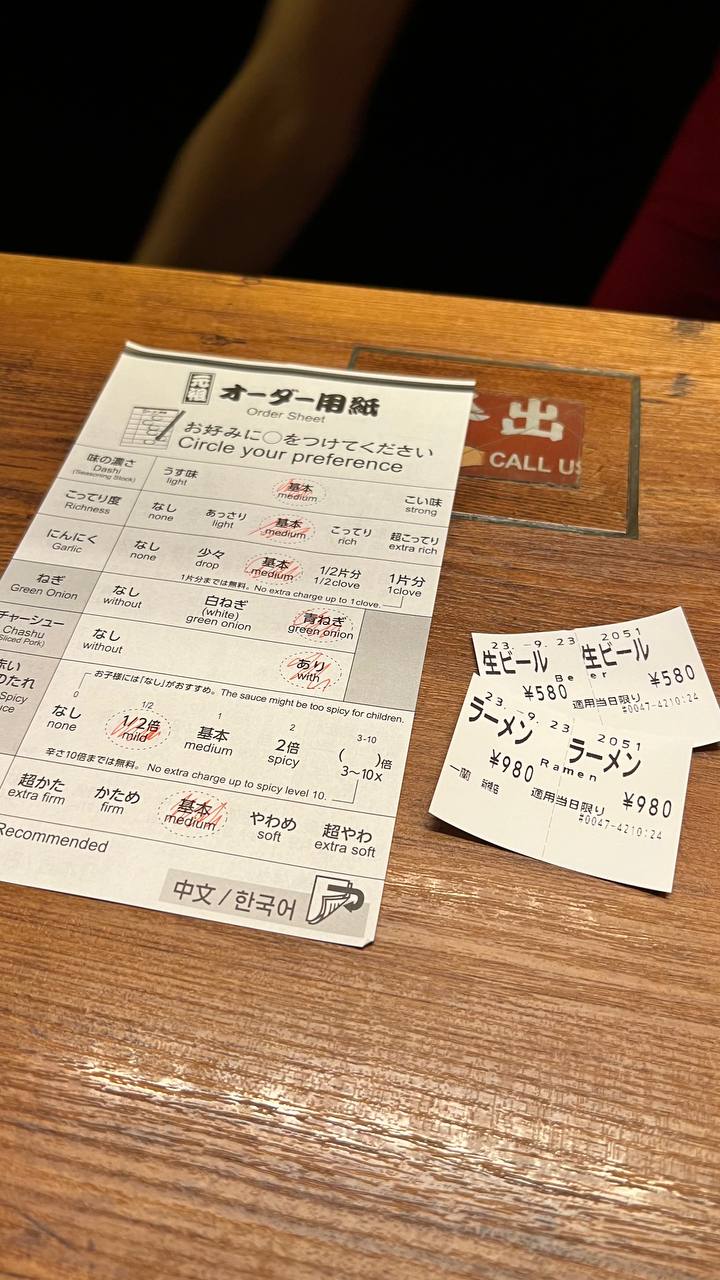 元祖 オーダー用紙
Order Sheet
お好みに○をつけてください
Circle your preference
味の濃さ うす味 基本 こい味
Dashi light medium strong
(Seasoning Stock)
こってり度 なし あっさり 基本 こってり 超こってり
Richness none light medium rich extra rich
にんにく なし 少々 基本 1/2片分 1片分
Garlic none drop medium 1/2clove 1clove
1片分までは無料。No extra charge up to 1clove.
ねぎ なし 白ねぎ 青ねぎ
Green Onion without (white) green onion
green onion
チャーシュー なし あり
Chashu without with
(Sliced Pork)
お子様には「なし」がおすすめ。The sauce might be too spicy for children.
0 1/2 1 2 3-10
のたれ なし 1/2倍 基本 2倍 ( )倍
Spicy none mild medium spicy 3~10x
辛さ10倍までは無料。No extra charge up to spicy level 10.
超かた かため 基本 やわめ 超やわ
extra firm firm medium soft extra soft
Recommended
中文 / 한국어
出
CALL US
23. -9. 23 2051
生ビール 生ビール
Beer
¥580 ¥580
適用当日限り
#0047-4210:24
23. 9. 23 2051
ラーメン ラーメン
Ramen
¥980 ¥980
一蘭
適用当日限り
#0047-4210:24